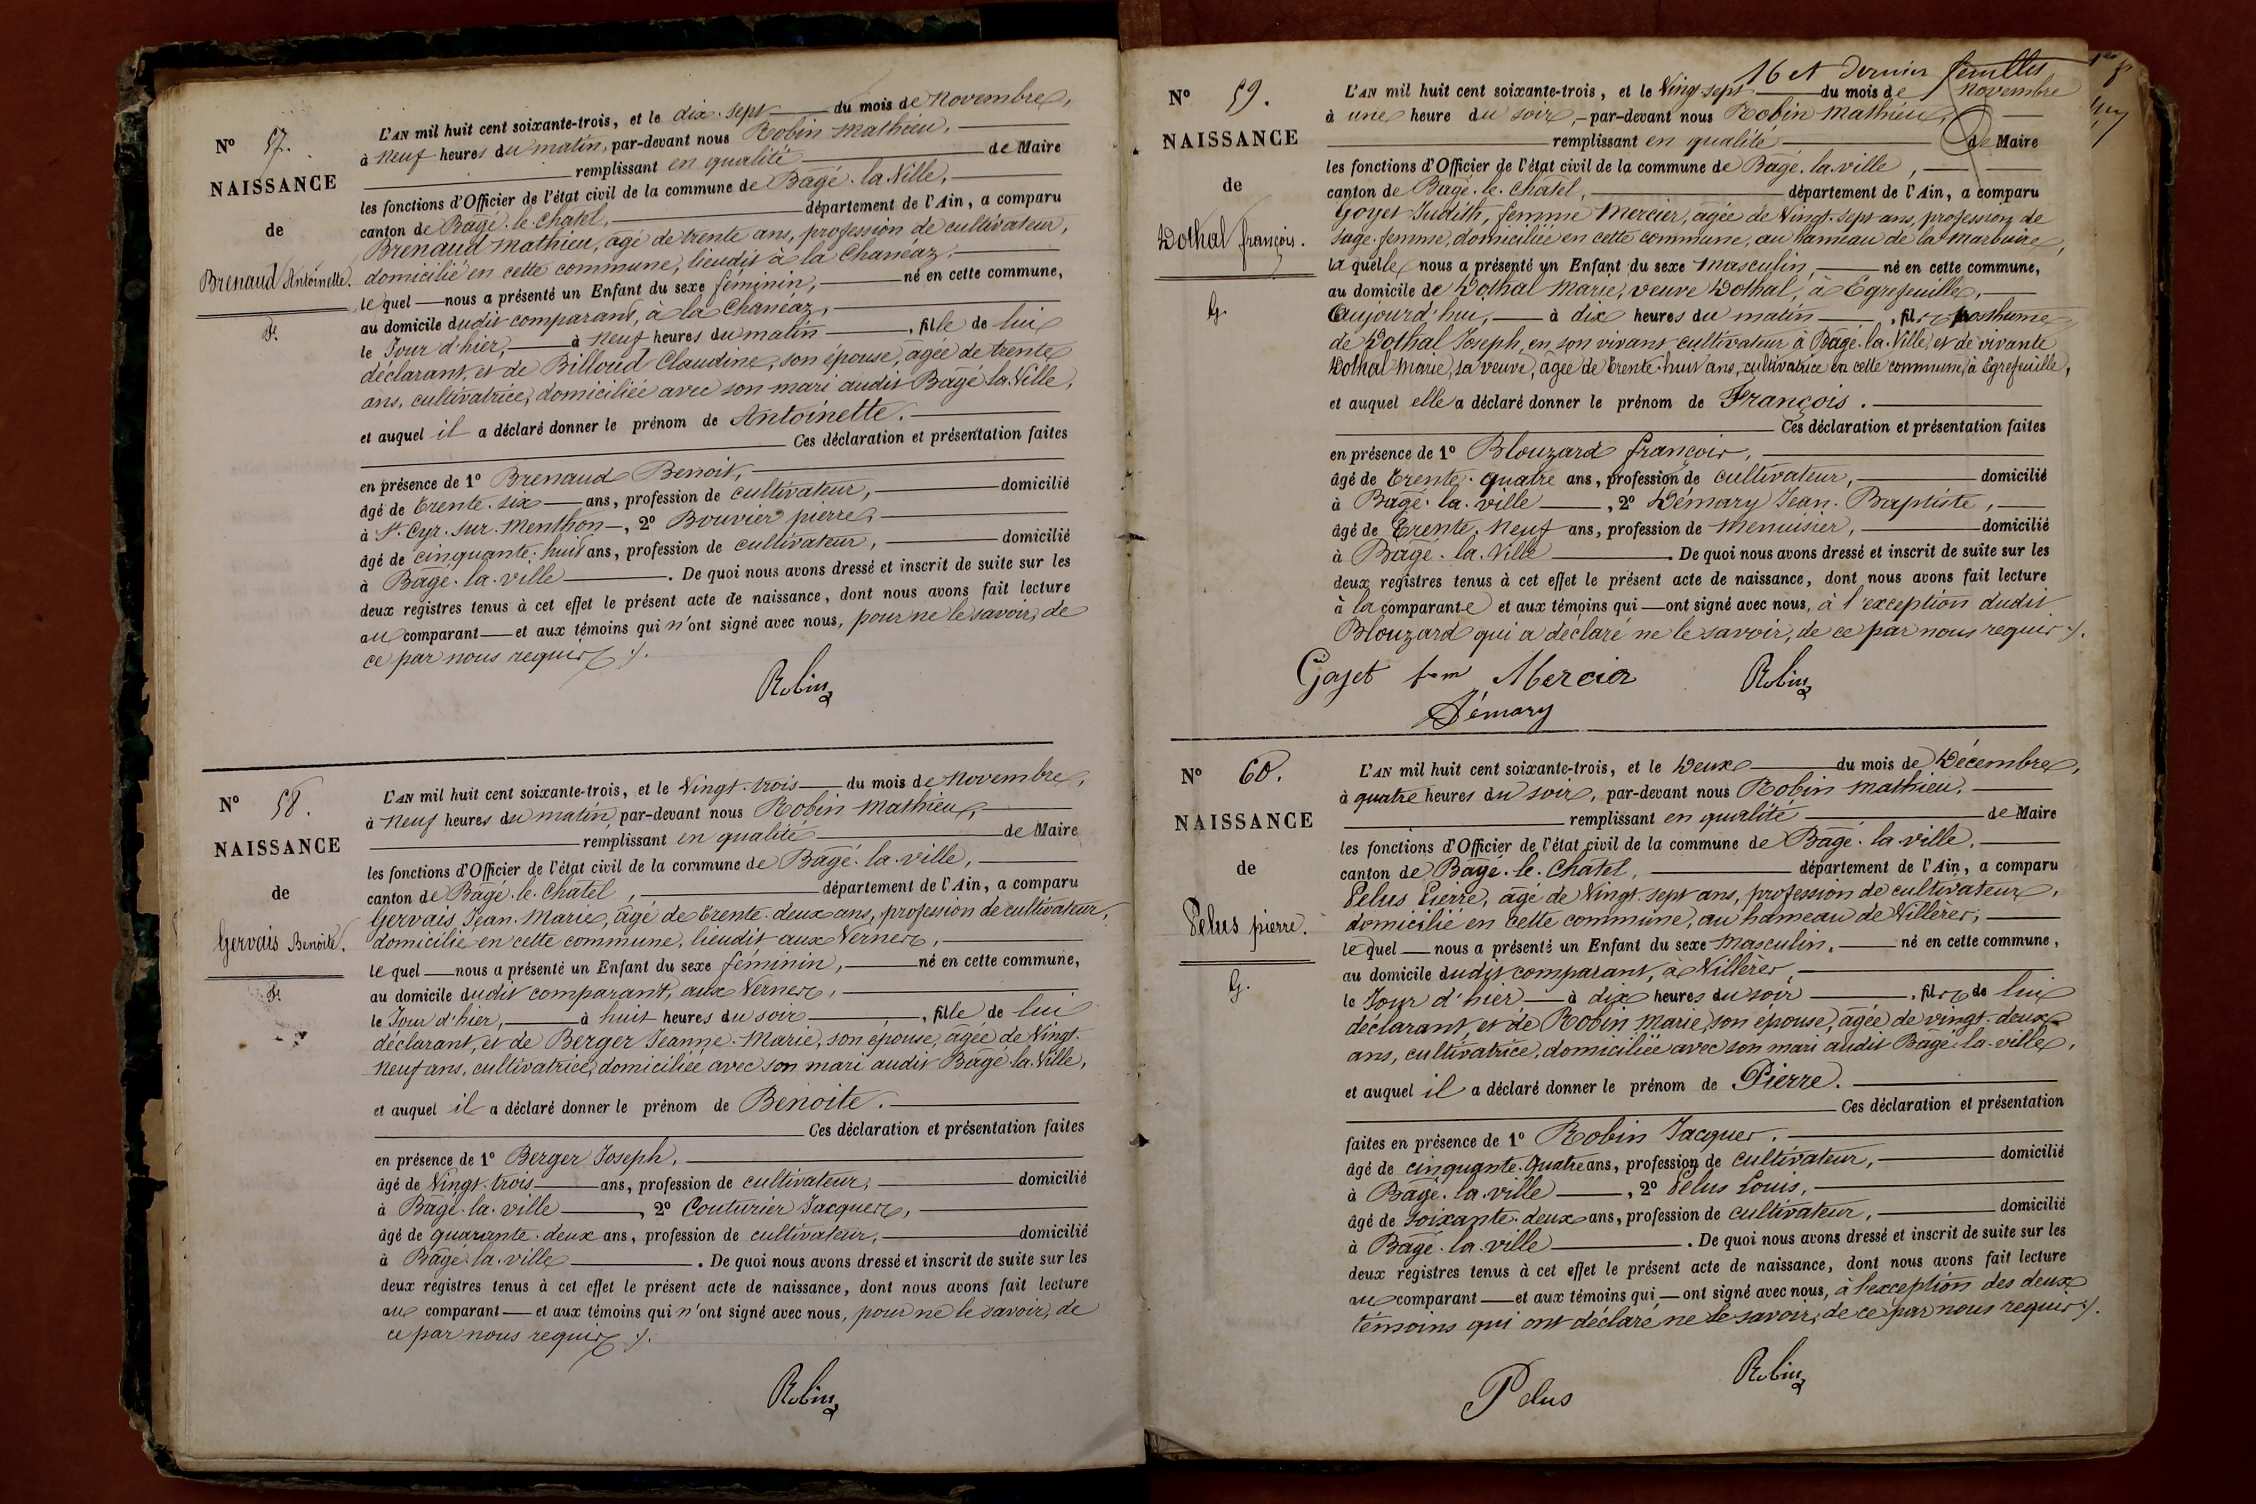 N° 57.
NAISSANCE
de
Brenaud Antoinette.
F.
L'AN mil huit cent soixante-trois, et le dix-sept du mois de Novembre,
à neuf heures du matin, par-devant nous Robin Mathieu,
remplissant en qualité de Maire
les fonctions d'Officier de l'état civil de la commune de Bâgé-la-Ville,
canton de Bâgé-le-Chatel, département de l'Ain, a comparu
Brenaud Mathieu, âgé de trente ans, profession de cultivateur,
domicilié en cette commune, lieudit à la Chanéaz,
lequel nous a présenté un Enfant du sexe féminin, né en cette commune,
au domicile dudit comparant, à la Chanéaz,
le Jour d'hier, à neuf heures du matin, fille de lui
déclarant, et de Billoud Claudine, son épouse, âgée de trente
ans, cultivatrice, domiciliée avec son mari audit Bâgé-la-Ville,
et auquel il a déclaré donner le prénom de Antoinette.
Ces déclaration et présentation faites
en présence de 1° Brenaud Benoit,
âgé de trente-six ans, profession de cultivateur, domicilié
à St-Cyr-sur-Menthon, 2° Bouvier pierre,
âgé de cinquante-huit ans, profession de cultivateur, domicilié
à Bâgé-la-ville. De quoi nous avons dressé et inscrit de suite sur les
deux registres tenus à cet effet le présent acte de naissance, dont nous avons fait lecture
au comparant et aux témoins qui n'ont signé avec nous, pour ne le savoir, de
ce par nous requis ./.
Robin
N° 58.
NAISSANCE
de
Gervais Benoite.
F.
L'AN mil huit cent soixante-trois, et le Vingt-trois du mois de Novembre,
à neuf heures du matin, par-devant nous Robin Mathieu,
remplissant en qualité de Maire
les fonctions d'Officier de l'état civil de la commune de Bâgé-la-ville,
canton de Bâgé-le-Chatel, département de l'Ain, a comparu
Gervais Jean-Marie, âgé de trente-deux ans, profession de cultivateur,
domicilié en cette commune, lieudit aux Vernes,
lequel nous a présenté un Enfant du sexe féminin, né en cette commune,
au domicile dudit comparant, aux Vernes,
le Jour d'hier, à huit heures du soir, fille de lui
déclarant, et de Berger Jeanne-Marie, son épouse, âgée de Vingt-
neuf ans, cultivatrice, domiciliée avec son mari audit Bâgé-la-Ville,
et auquel il a déclaré donner le prénom de Benoite.
Ces déclaration et présentation faites
en présence de 1° Berger Joseph,
âgé de Vingt-trois ans, profession de cultivateur, domicilié
à Bâgé-la-ville, 2° Couturier Jacques,
âgé de quarante-deux ans, profession de cultivateur, domicilié
à Bâgé-la-ville. De quoi nous avons dressé et inscrit de suite sur les
deux registres tenus à cet effet le présent acte de naissance, dont nous avons fait lecture
au comparant et aux témoins qui n'ont signé avec nous, pour ne le savoir, de
ce par nous requis ./.
Robin
16 et dernier feuillet
N° 59.
NAISSANCE
de
Dothal françois.
G.
L'AN mil huit cent soixante-trois, et le Vingt-sept du mois de Novembre
à une heure du soir, par-devant nous Robin Mathieu,
remplissant en qualité de Maire
les fonctions d'Officier de l'état civil de la commune de Bâgé-la-ville,
canton de Bâgé-le-Chatel, département de l'Ain, a comparu
Goyet Judith, femme Mercier, âgée de Vingt-sept ans, profession de
sage-femme, domiciliée en cette commune, au hameau de la Marbuire,
laquelle nous a présenté un Enfant du sexe Masculin, né en cette commune,
au domicile de Dothal Marie, veuve Dothal, à Egrefeuille,
Aujourd'hui, à dix heures du matin, fils posthume
de Dothal Joseph, en son vivant cultivateur à Bâgé-la-Ville, et de vivante
Dothal Marie, sa veuve, âgée de trente-huit ans, cultivatrice en cette commune, à Egrefeuille,
et auquel elle a déclaré donner le prénom de François.
Ces déclaration et présentation faites
en présence de 1° Blouzard françois,
âgé de trente-quatre ans, profession de cultivateur, domicilié
à Bâgé-la-ville, 2° Démary Jean-Baptiste,
âgé de trente-neuf ans, profession de menuisier, domicilié
à Bâgé-la-Ville. De quoi nous avons dressé et inscrit de suite sur les
deux registres tenus à cet effet le présent acte de naissance, dont nous avons fait lecture
à la comparante et aux témoins qui ont signé avec nous, à l'exception dudit
Blouzard qui a déclaré ne le savoir, de ce par nous requis ./.
Gojet fem Mercier Robin
Démary
N° 60.
NAISSANCE
de
Pelus pierre.
G.
L'AN mil huit cent soixante-trois, et le Deux du mois de Décembre,
à quatre heures du soir, par-devant nous Robin Mathieu,
remplissant en qualité de Maire
les fonctions d'Officier de l'état civil de la commune de Bâgé-la-ville,
canton de Bâgé-le-Chatel, département de l'Ain, a comparu
Pelus Pierre, âgé de Vingt-sept ans, profession de cultivateur,
domicilié en cette commune, au hameau de Villères,
lequel nous a présenté un Enfant du sexe Masculin, né en cette commune,
au domicile dudit comparant, à Villères,
le Jour d'hier à dix heures du soir, fils de lui
déclarant, et de Robin Marie, son épouse, âgée de vingt-deux
ans, cultivatrice, domiciliée avec son mari audit Bâgé-la-ville,
et auquel il a déclaré donner le prénom de Pierre.
Ces déclaration et présentation
faites en présence de 1° Robin Jacques,
âgé de cinquante-quatre ans, profession de cultivateur, domicilié
à Bâgé-la-ville, 2° Pelus Louis,
âgé de soixante-deux ans, profession de cultivateur, domicilié
à Bâgé-la-ville. De quoi nous avons dressé et inscrit de suite sur les
deux registres tenus à cet effet le présent acte de naissance, dont nous avons fait lecture
au comparant et aux témoins qui ont signé avec nous, à l'exception des deux
témoins qui ont déclaré ne le savoir, de ce par nous requis ./.
Pelus Robin